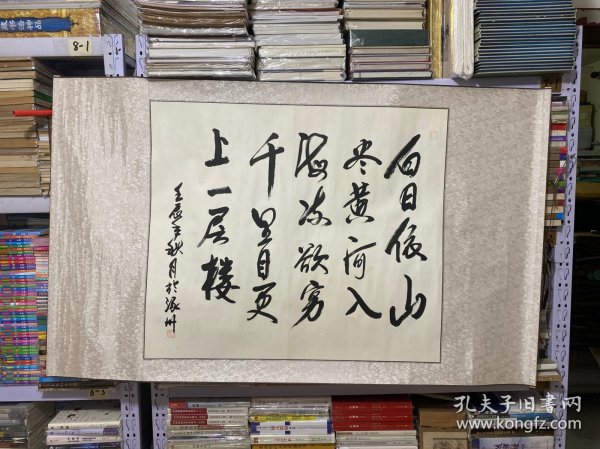 白日依山
尽黄河入
海流欲穷
千里目更
上一层楼
壬辰年秋月於州
8-1
8-3
孔夫子旧书网
www.kongfz.com